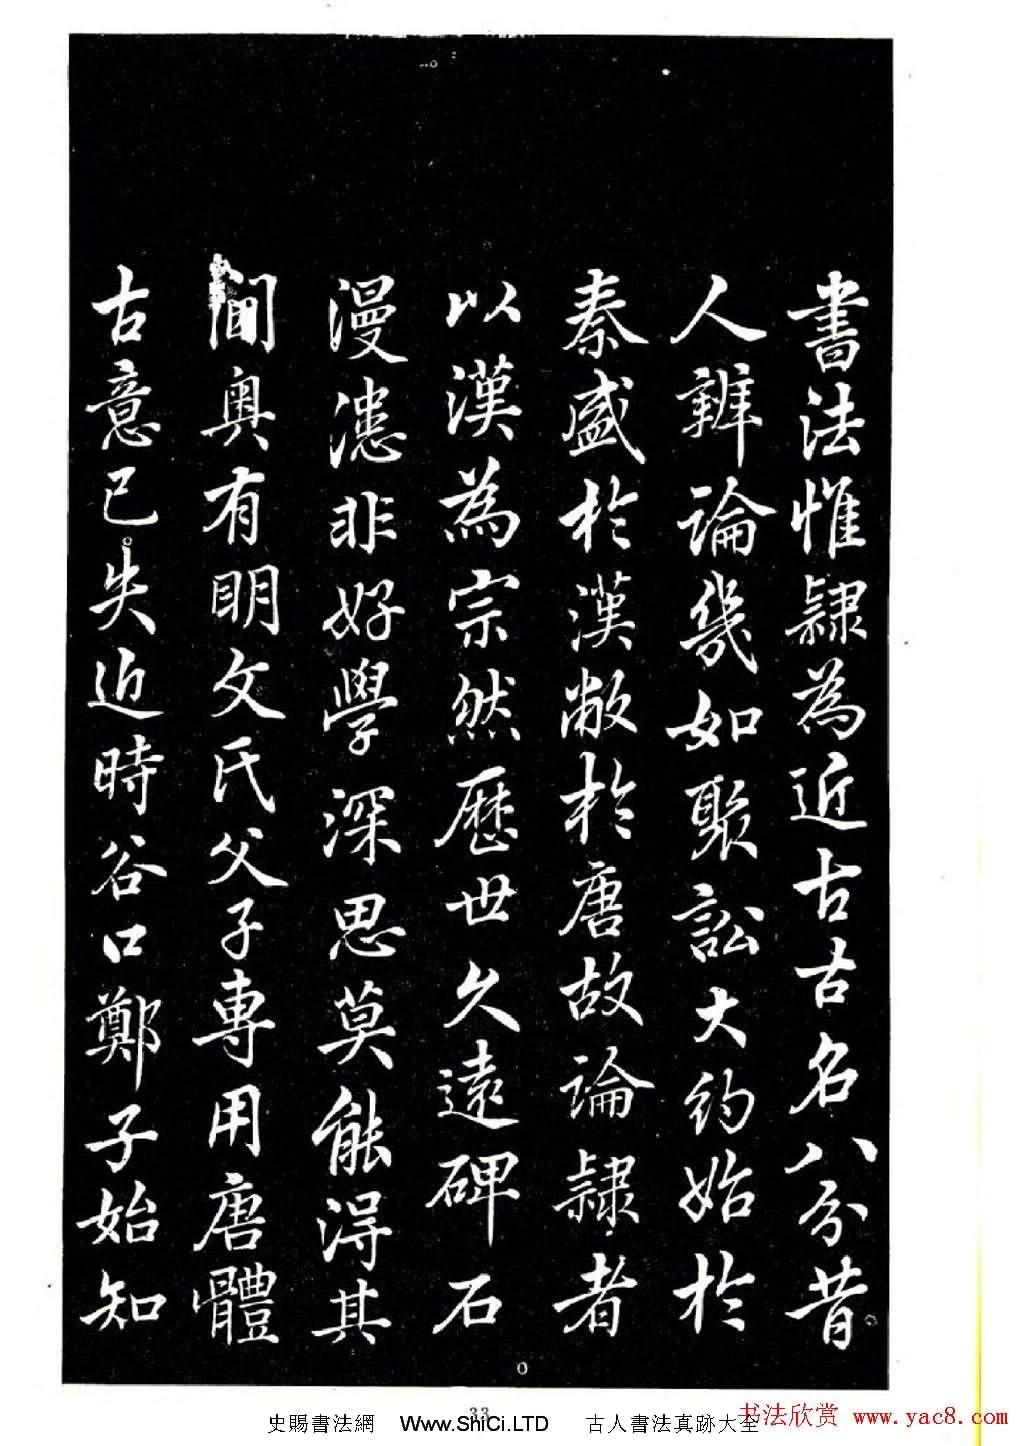 書法惟隸為近古古名八分昔
人辨論幾如聚訟大約始於
秦盛於漢敝於唐故論隸者
以漢為宗然歷世久遠碑石
漫漶非好學深思莫能得其
閫奧有明文氏父子專用唐體
古意已失近時谷口鄭子始知
33
史賜書法網 Www.ShiCi.LTD 古人書法真跡大全
书法欣赏 www.yac8.com